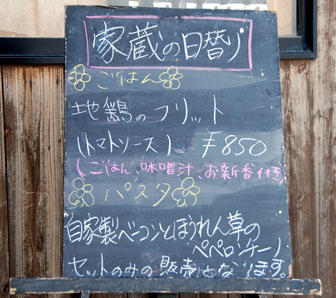 家蔵の日替り
ごはん
地鶏のフリット
(トマトソース) ¥850
(ごはん、味噌汁、お新香付き)
パスタ
自家製ベーコンとほうれん草の
ペペロンチーノ
セットのみの販売となります。